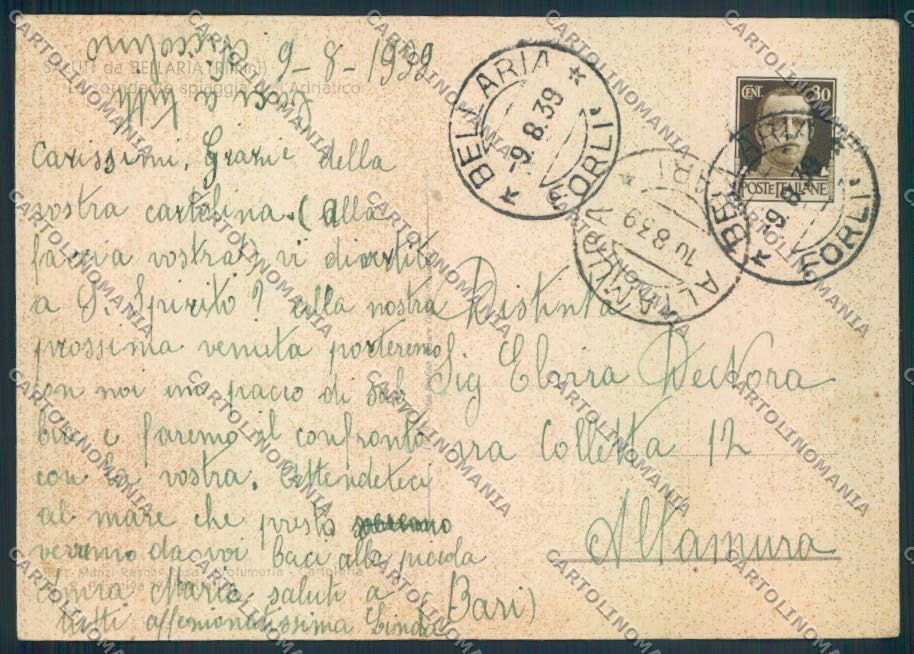 SALUTI da BELLARIA (Rimini)
La splendida spiaggia dell'Adriatico
9-8-1939
Baci a tutti
Carissimi, Grazie della
vostra cartolina. (alla
faccia vostra!) vi divertite
a S. Spirito? alla nostra
prossima venuta porteremo
con noi un pacco di sab
bia e faremo il confronto
con la vostra. Attendeteci
al mare che presto
verremo da voi baci alla piccola
Maria saluti a
tutti affezionatissima Linda
BELLARIA * FORLI *
9.8.39
ALTAMURA * BARI *
10.8.39
CENT. 30
POSTE ITALIANE
BELLARIA * FORLI *
9.8.39
Distinta
Sig Elvira Dectora
Colletta 12
Altamura
(Bari)
Profumeria - Cartoleria
CARTOLINOMANIA